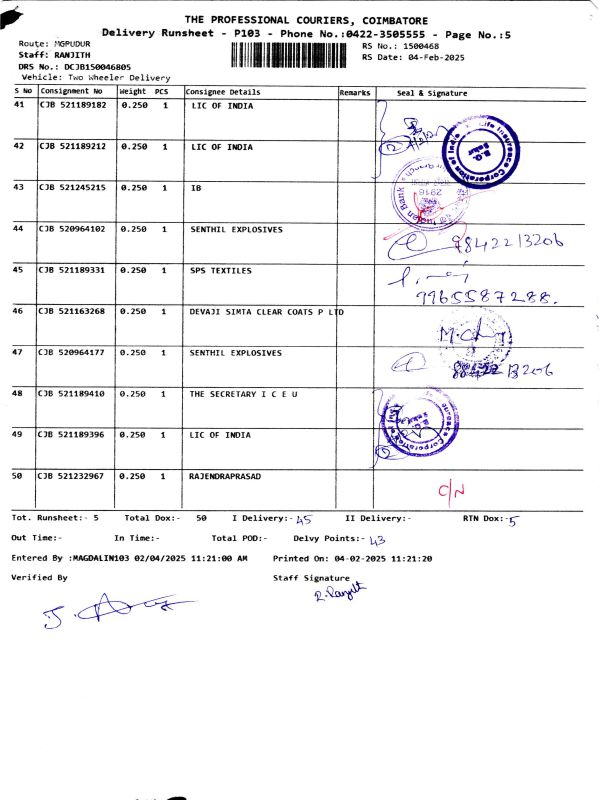 THE PROFESSIONAL COURIERS, COIMBATORE
Delivery Runsheet - P103 - Phone No.:0422-3505555 - Page No.:5
Route: MGPUDUR
RS No.: 1500468
Staff: RANJITH
RS Date: 04-Feb-2025
DRS No.: DCJB150046805
Vehicle: Two Wheeler Delivery
S No Consignment No Weight PCS Consignee Details Remarks Seal & Signature
41 CJB 521189182 0.250 1 LIC OF INDIA
42 CJB 521189212 0.250 1 LIC OF INDIA
Life Insurance Corporation of India
43 CJB 521245215 0.250 1 IB
Indian Bank
44 CJB 520964102 0.250 1 SENTHIL EXPLOSIVES 9842213206
45 CJB 521189331 0.250 1 SPS TEXTILES
9965587288.
46 CJB 521163268 0.250 1 DEVAJI SIMTA CLEAR COATS P LTD
47 CJB 520964177 0.250 1 SENTHIL EXPLOSIVES
48 CJB 521189410 0.250 1 THE SECRETARY I C E U
49 CJB 521189396 0.250 1 LIC OF INDIA
50 CJB 521232967 0.250 1 RAJENDRAPRASAD
C/N
Tot. Runsheet:- 5 Total Dox:- 50 I Delivery:- 45 II Delivery:- RTN Dox:- 5
Out Time:- In Time:- Total POD:- Delvy Points:- 43
Entered By :MAGDALIN103 02/04/2025 11:21:00 AM Printed On: 04-02-2025 11:21:20
Verified By Staff Signature
R. Ranjith